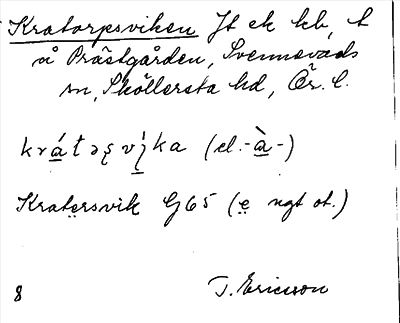 Kratorpsviken Jt ek kb, t
å Prästgården, Svennevads
sn, Sköllersta hd, Ör. l.
krátəs̨vi̗ka (el. -à-)
Kratersvik G65 (e ngt ot.)
8 T. Ericsson